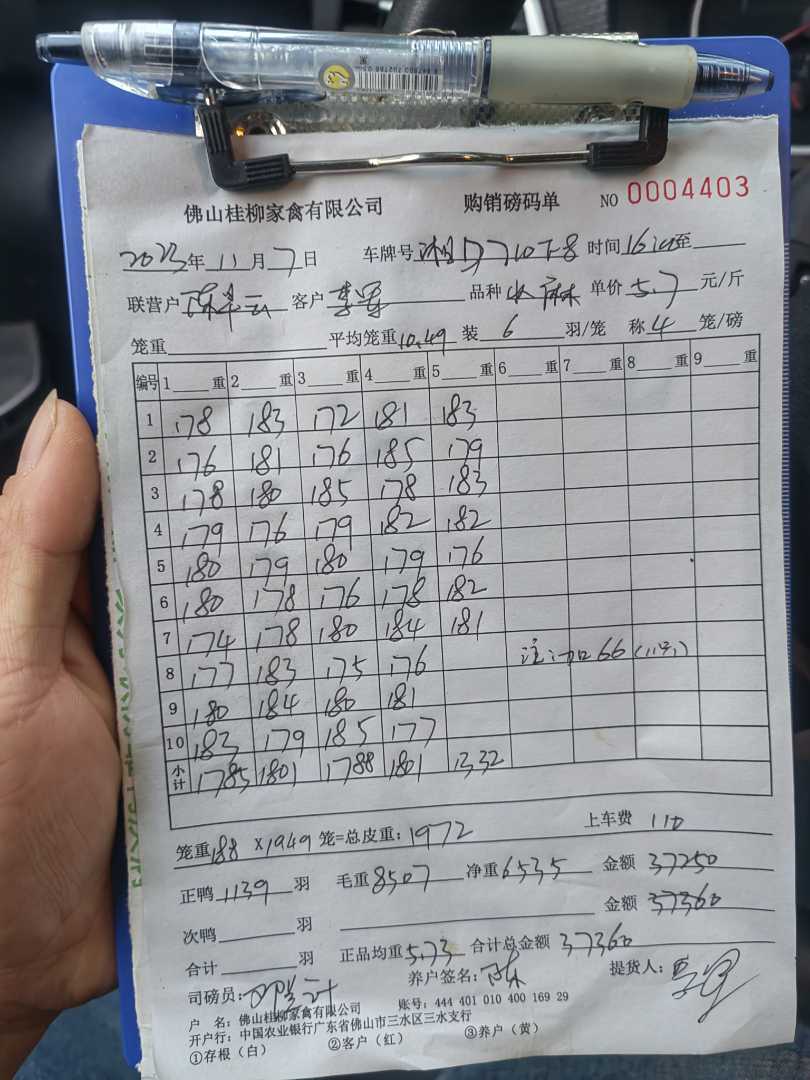 佛山桂柳家禽有限公司 购销磅码单 NO 0004403
2023年 11月 7日 车牌号 时间 16:10至
联营户 客户 李军 品种 麻 单价 5.7 元/斤
笼重 平均笼重 10.49 装 6 羽/笼 称 4 笼/磅
编号 1 重 2 重 3 重 4 重 5 重 6 重 7 重 8 重 9 重
1 178 183 172 181 183
2 176 181 176 185 179
3 178 180 185 178 183
4 179 176 179 182 182
5 180 179 180 179 176
6 180 178 176 178 182
7 174 178 180 184 181
8 177 183 175 176 注:加66
9 180 184 180 181
10 183 179 185 177
小计 1785 1801 1788 1801 1332
笼重 188 × 1949 笼=总皮重: 1972 上车费 110
正鸭 1139 羽 毛重 8507 净重 6535 金额 37250
次鸭 羽 金额 37360
合计 羽 正品均重 5.73 合计总金额 37360
司磅员: 养户签名: 陈 提货人: 李军
户 名: 佛山桂柳家禽有限公司 账号: 444 401 010 400 169 29
开户行: 中国农业银行广东省佛山市三水区三水支行
①存根（白） ②客户（红） ③养户（黄）